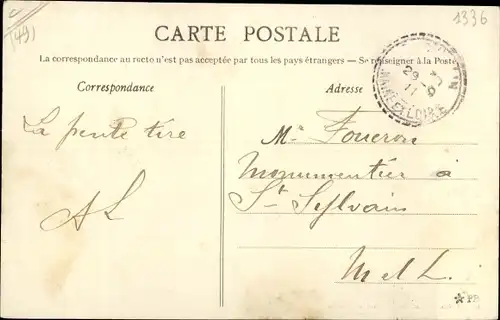 (49)
1336
CARTE POSTALE
La correspondance au recto n'est pas acceptée par tous les pays étrangers — Se renseigner à la Poste
Correspondance
Adresse
29
11
MAINE-ET-LOIRE
La pente tire
AL
Mr Foucron
Monumentier à
St Sylvain
M et L.